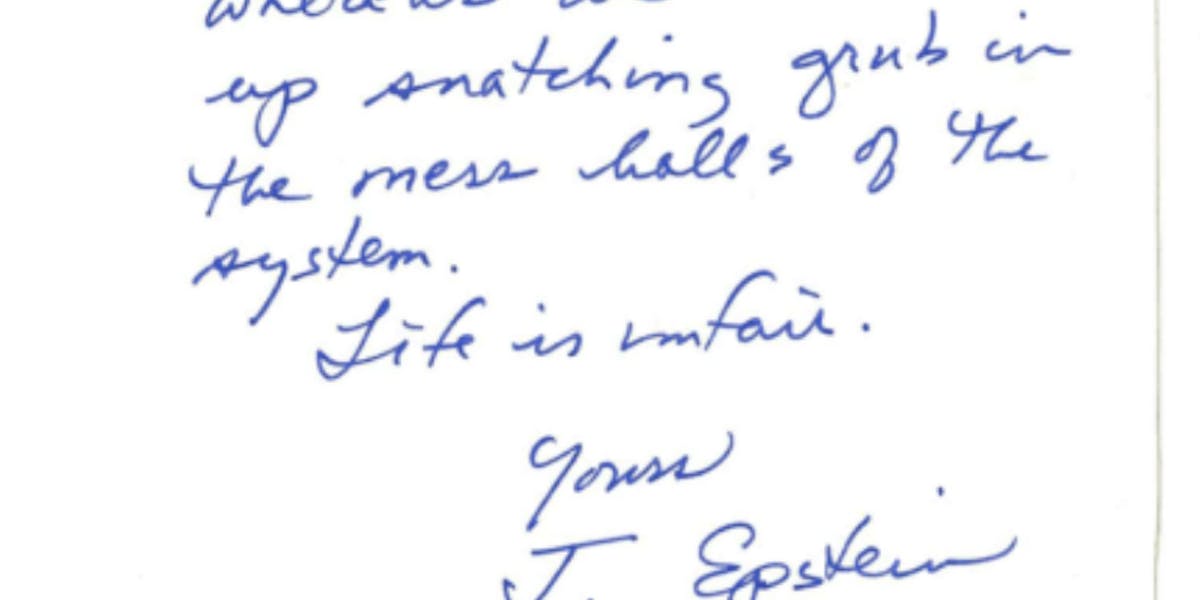 whereas we
up snatching grub in
the mess halls of the
system.
Life is unfair.
Yours
J. Epstein